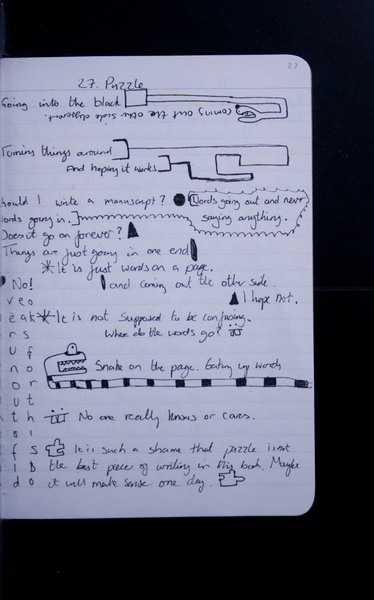 27
27. Puzzle
Going into the black
coming out the other side different.
Turning things around
And hoping it works
hould I write a manuscript?
Words going out and never
ords going in.
saying anything.
Does it go on forever?
Things are just going in one end
It is just words on a page.
No!
and coming out the other side.
I hope not.
It is not supposed to be confusing.
Where do the words go?
Snake on the page. Eating up words
No one really knows or cares.
It is such a shame that puzzle is not
the best piece of writing in this book. Maybe
it will make sense one day.